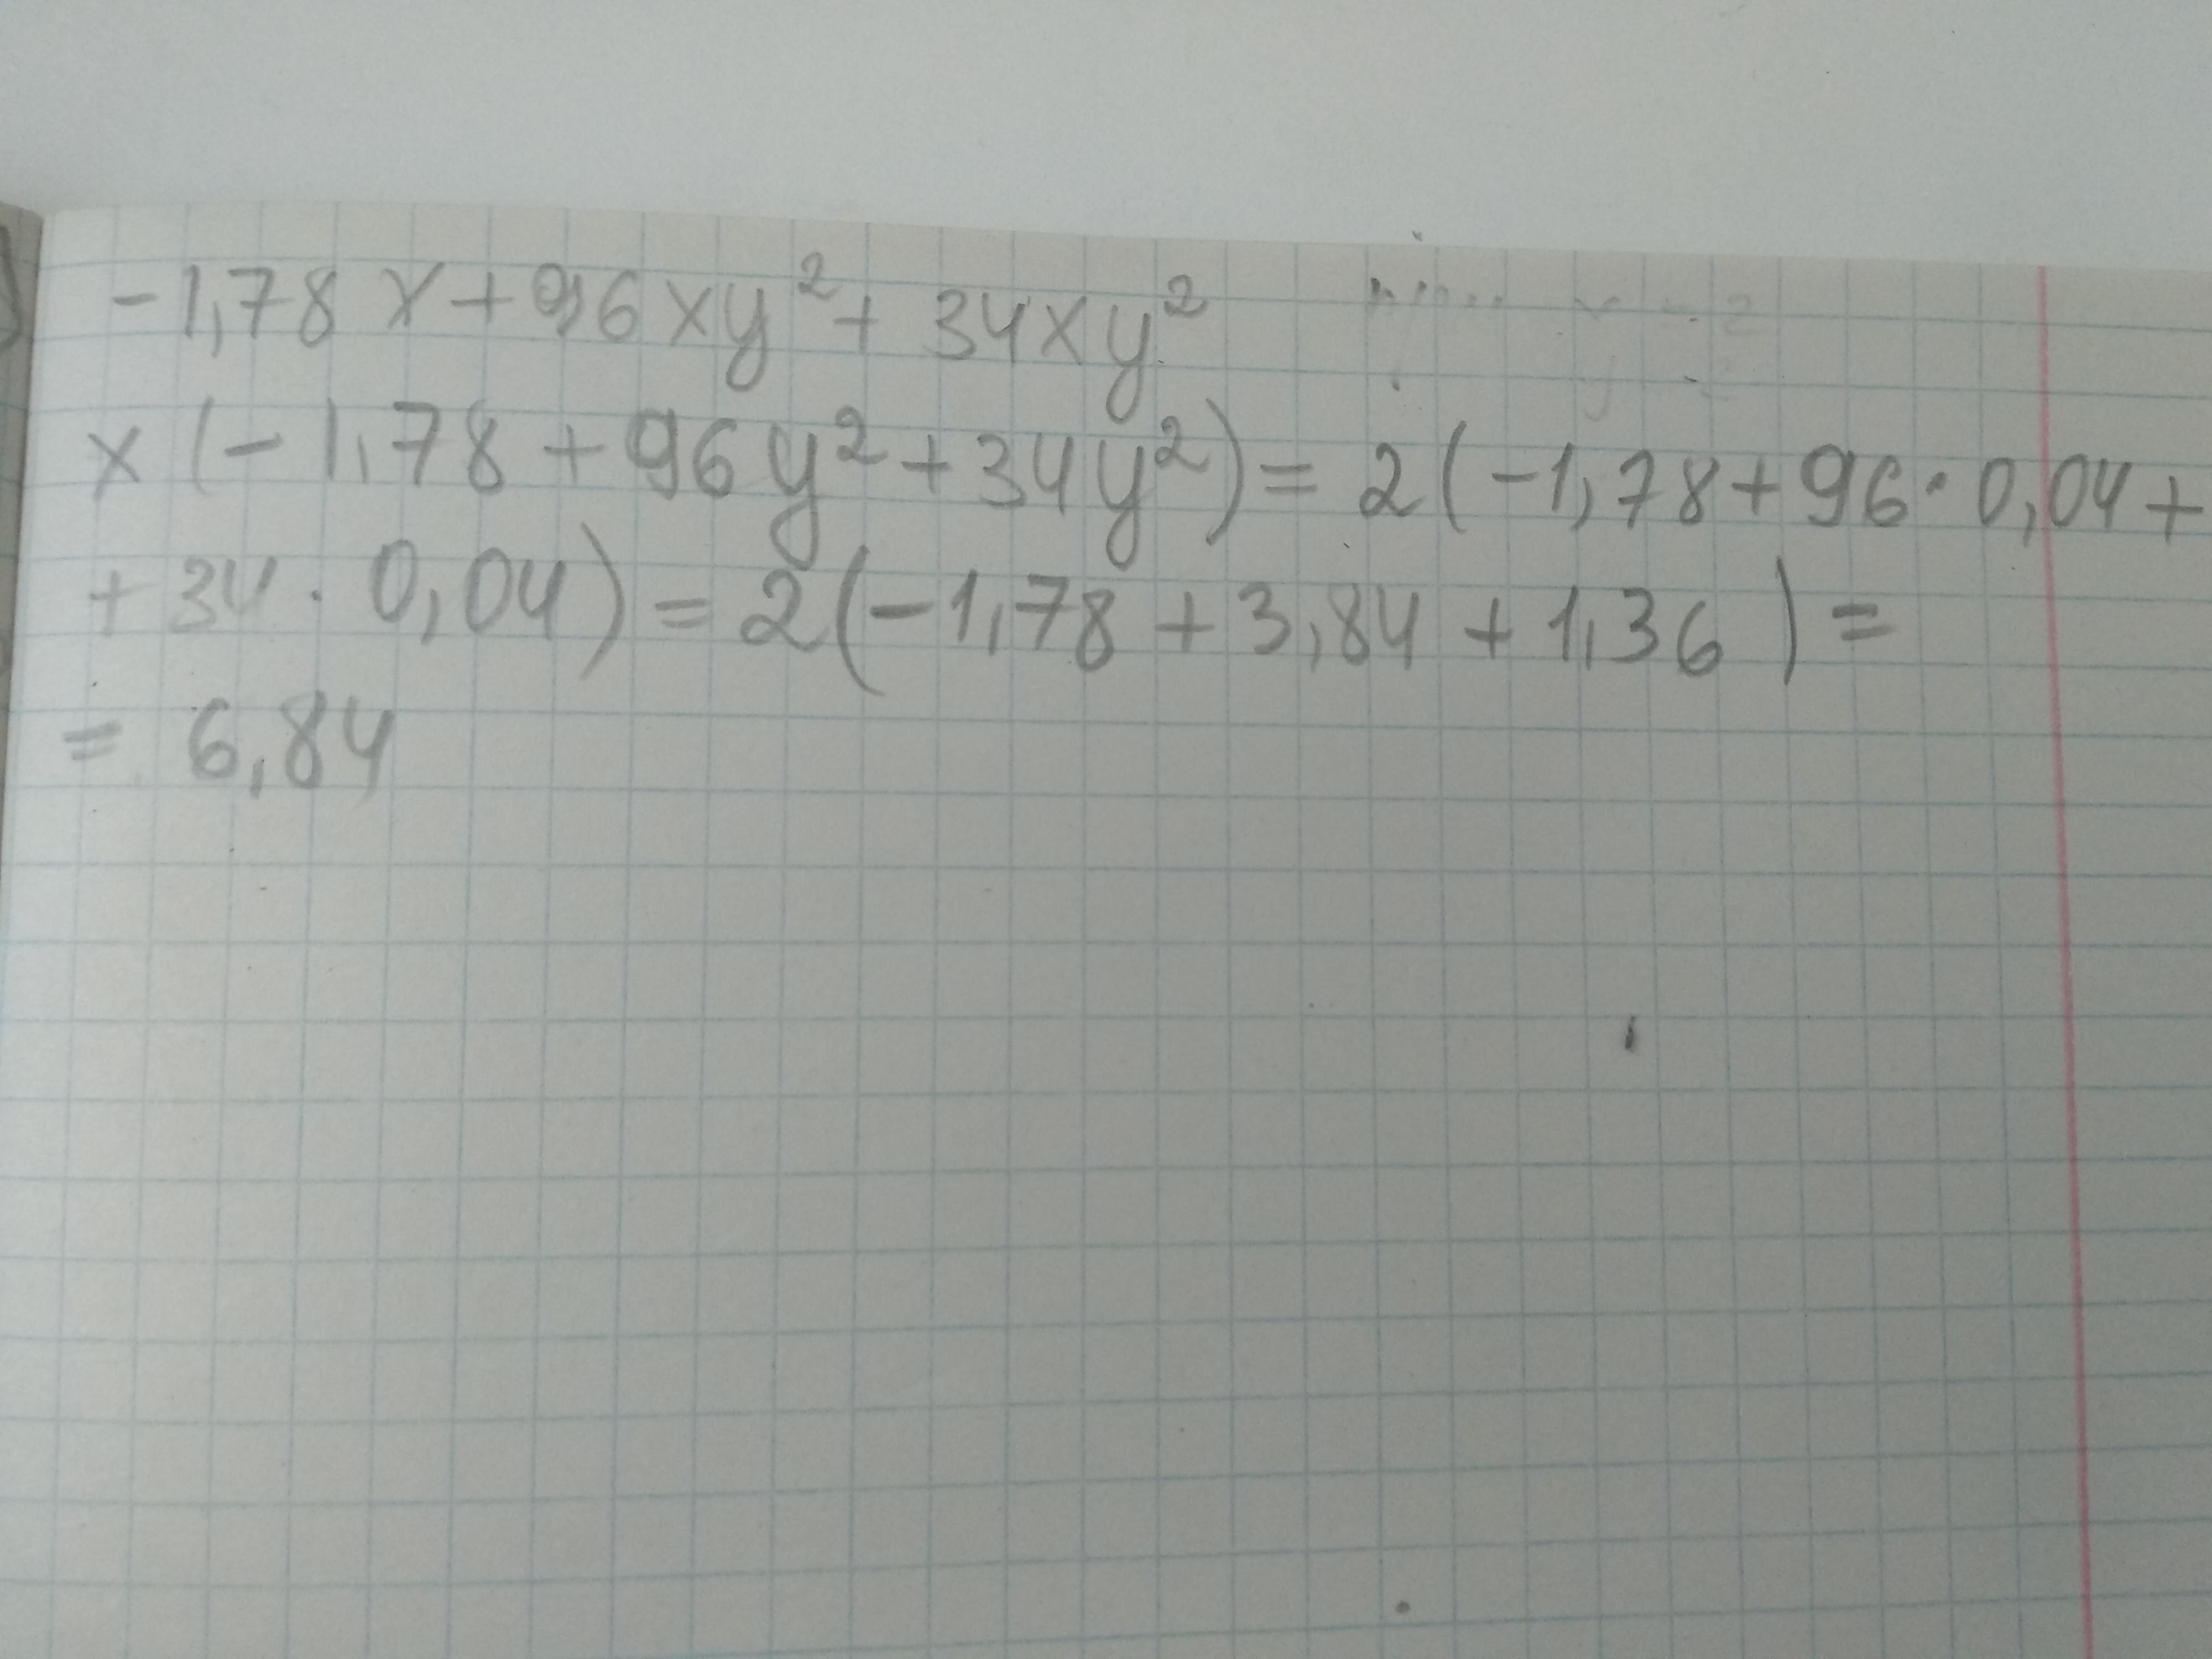 -1,78 x + 96 xy² + 34xy²
x (-1,78 + 96 y² + 34 y²) = 2 (-1,78 + 96 · 0,04 +
+ 34 · 0,04) = 2 (-1,78 + 3,84 + 1,36) =
= 6,84